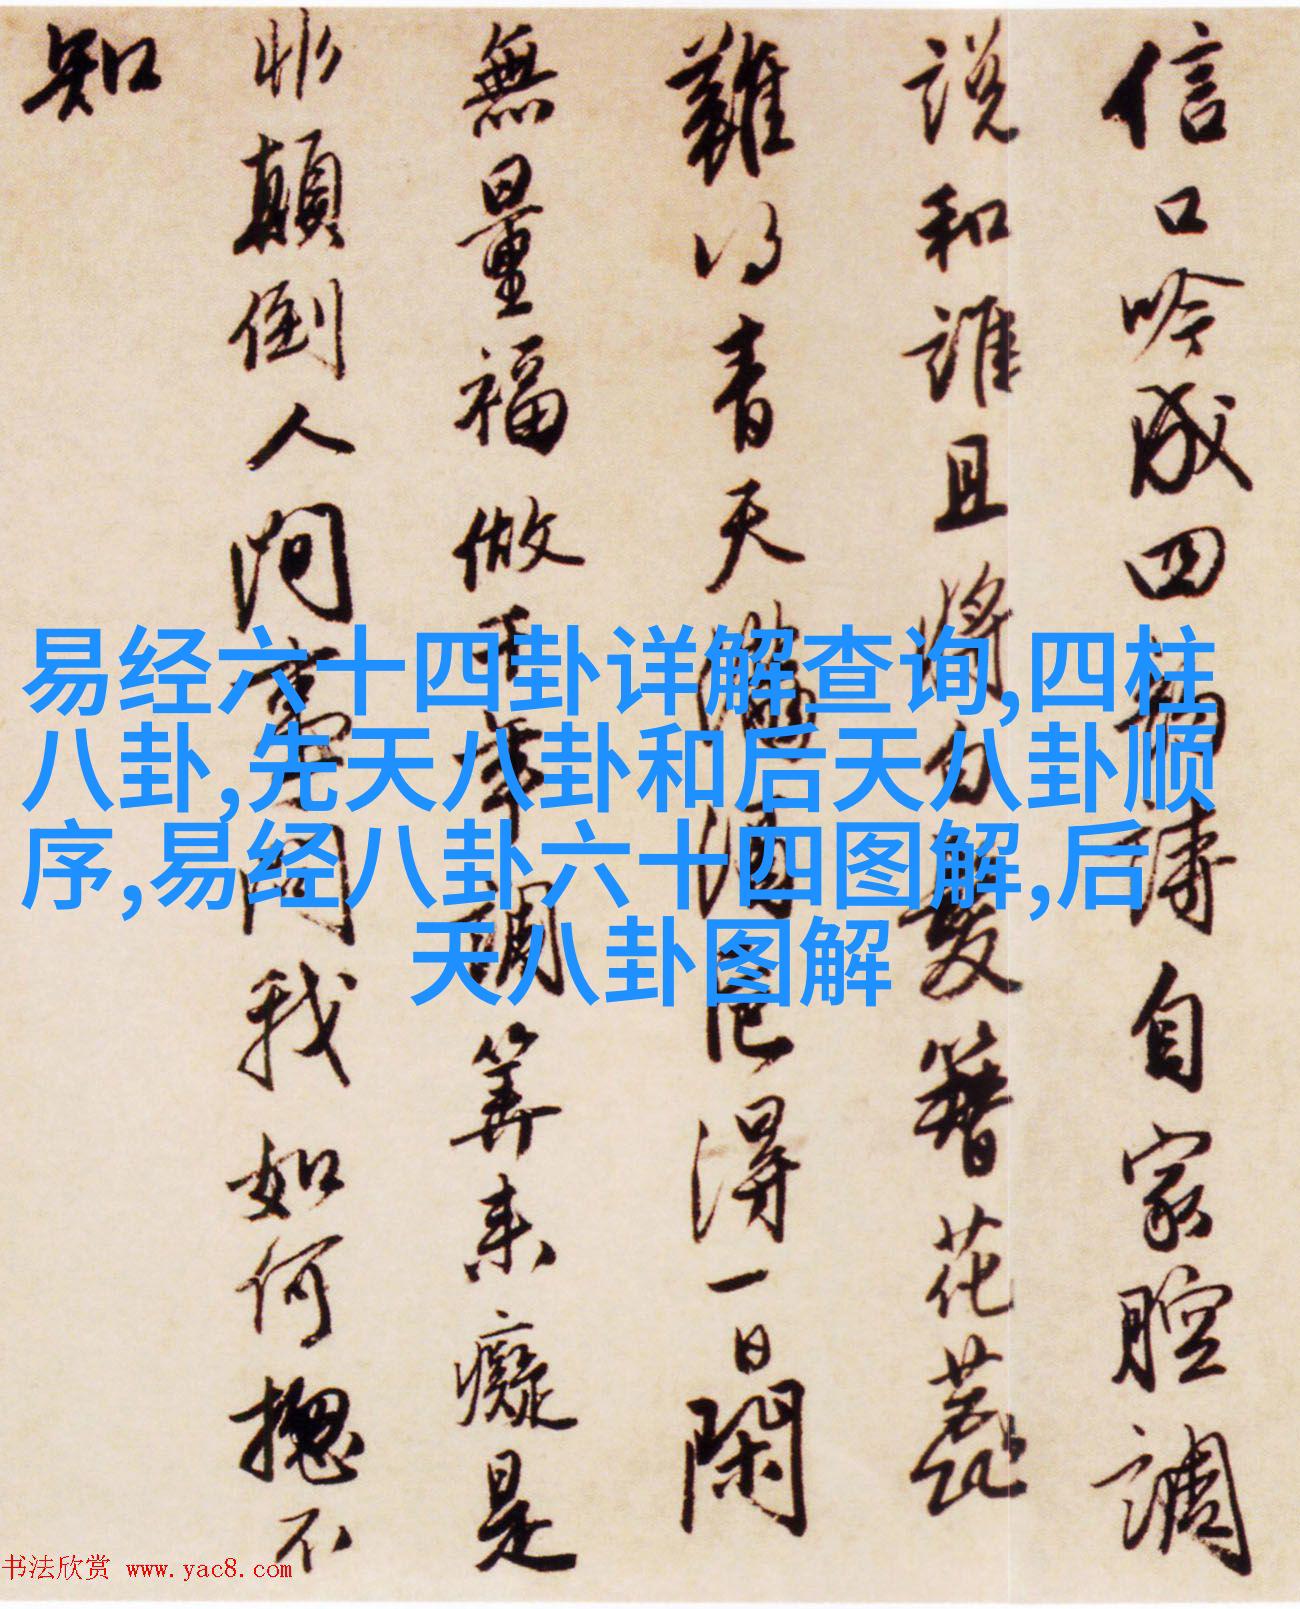 信口吟成四韵诗自家腔调
说和谁且将白发簪花蕊
难的青天满酒卮得一日闲
无量福做千年调算来痴是
非颠倒人间事问我如何揔不
知
易经六十四卦详解查询,四柱
八卦,先天八卦和后天八卦顺
序,易经八卦六十四图解,后
天八卦图解
书法欣赏 www.yac8.com